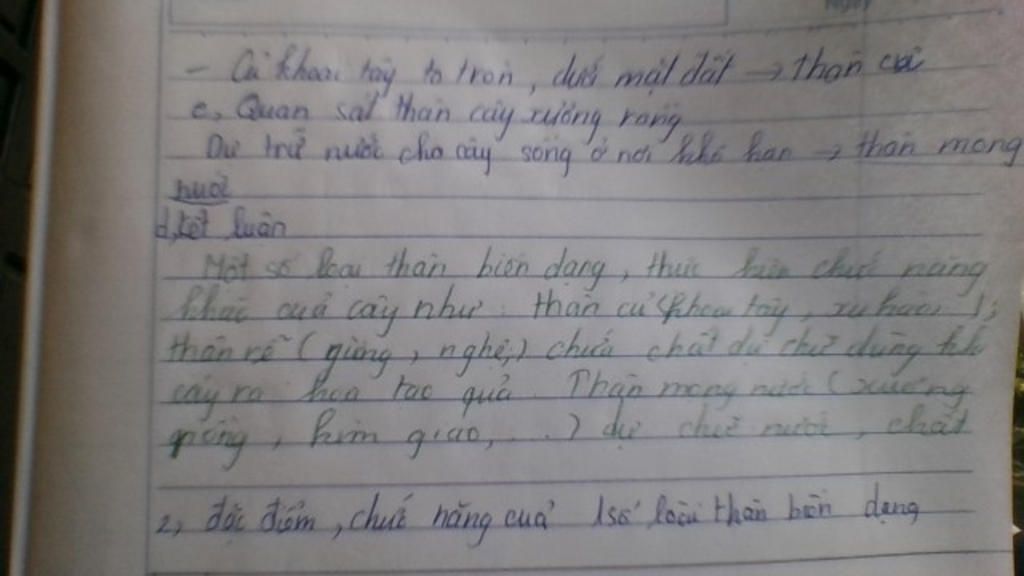 - Củ khoai tây to tròn, dưới mặt đất → thân củ
c, Quan sát thân cây xương rồng
Dự trữ nước cho cây sống ở nơi khô hạn → thân mọng
nước
d, kết luận
Một số loại thân biến dạng, thực hiện chức năng
khác của cây như: thân củ (khoai tây, su hào, );
thân rễ (gừng, nghệ,) chứa chất dự chữ dùng khi
cây ra hoa tạo quả. Thân mọng nước (xương
rồng, kim giao, ...) dự chữ nước, chất
2, đặc điểm, chức năng của 1 số loài thân biến dạng